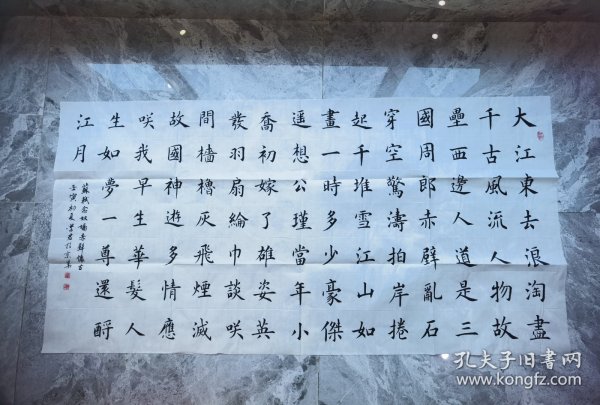 大江東去浪淘盡
千古風流人物故
壘西邊人道是三
國周郎赤壁亂石
穿空驚濤拍岸捲
起千堆雪江山如
畫一時多少豪傑
遥想公瑾當年小
喬初嫁了雄姿英
發羽扇綸巾談咲
間檣櫓灰飛煙滅
故國神遊多情應
咲我早生華髮人
生如夢一尊還酹
江月
蘇軾念奴嬌赤壁懷古
壬寅初夏
孔夫子旧書网
www.kongfz.com